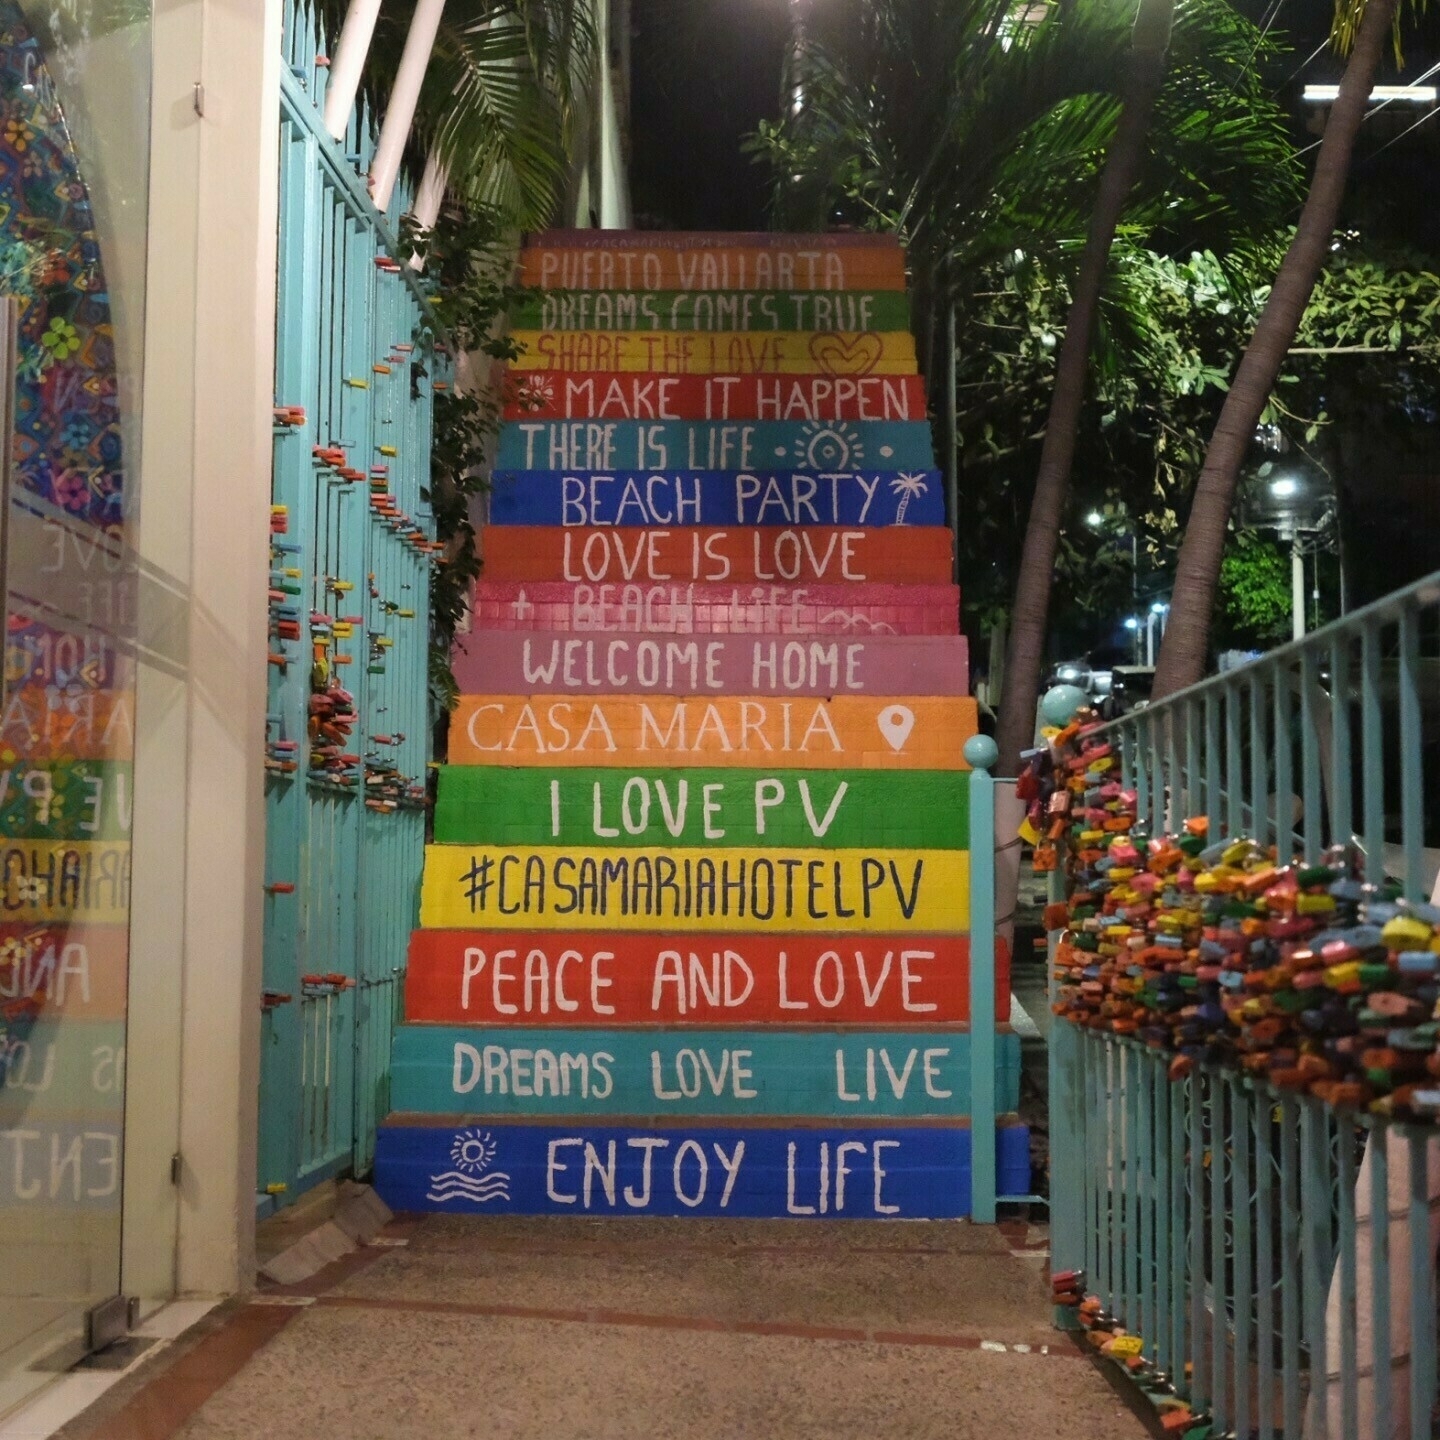 PUERTO VALLARTA
DREAMS COMES TRUE
SHARE THE LOVE
MAKE IT HAPPEN
THERE IS LIFE
BEACH PARTY
LOVE IS LOVE
+ BEACH LiFE
WELCOME HOME
CASA MARIA
I LOVE PV
#CASAMARIAHOTELPV
PEACE AND LOVE
DREAMS LOVE LIVE
ENJOY LIFE